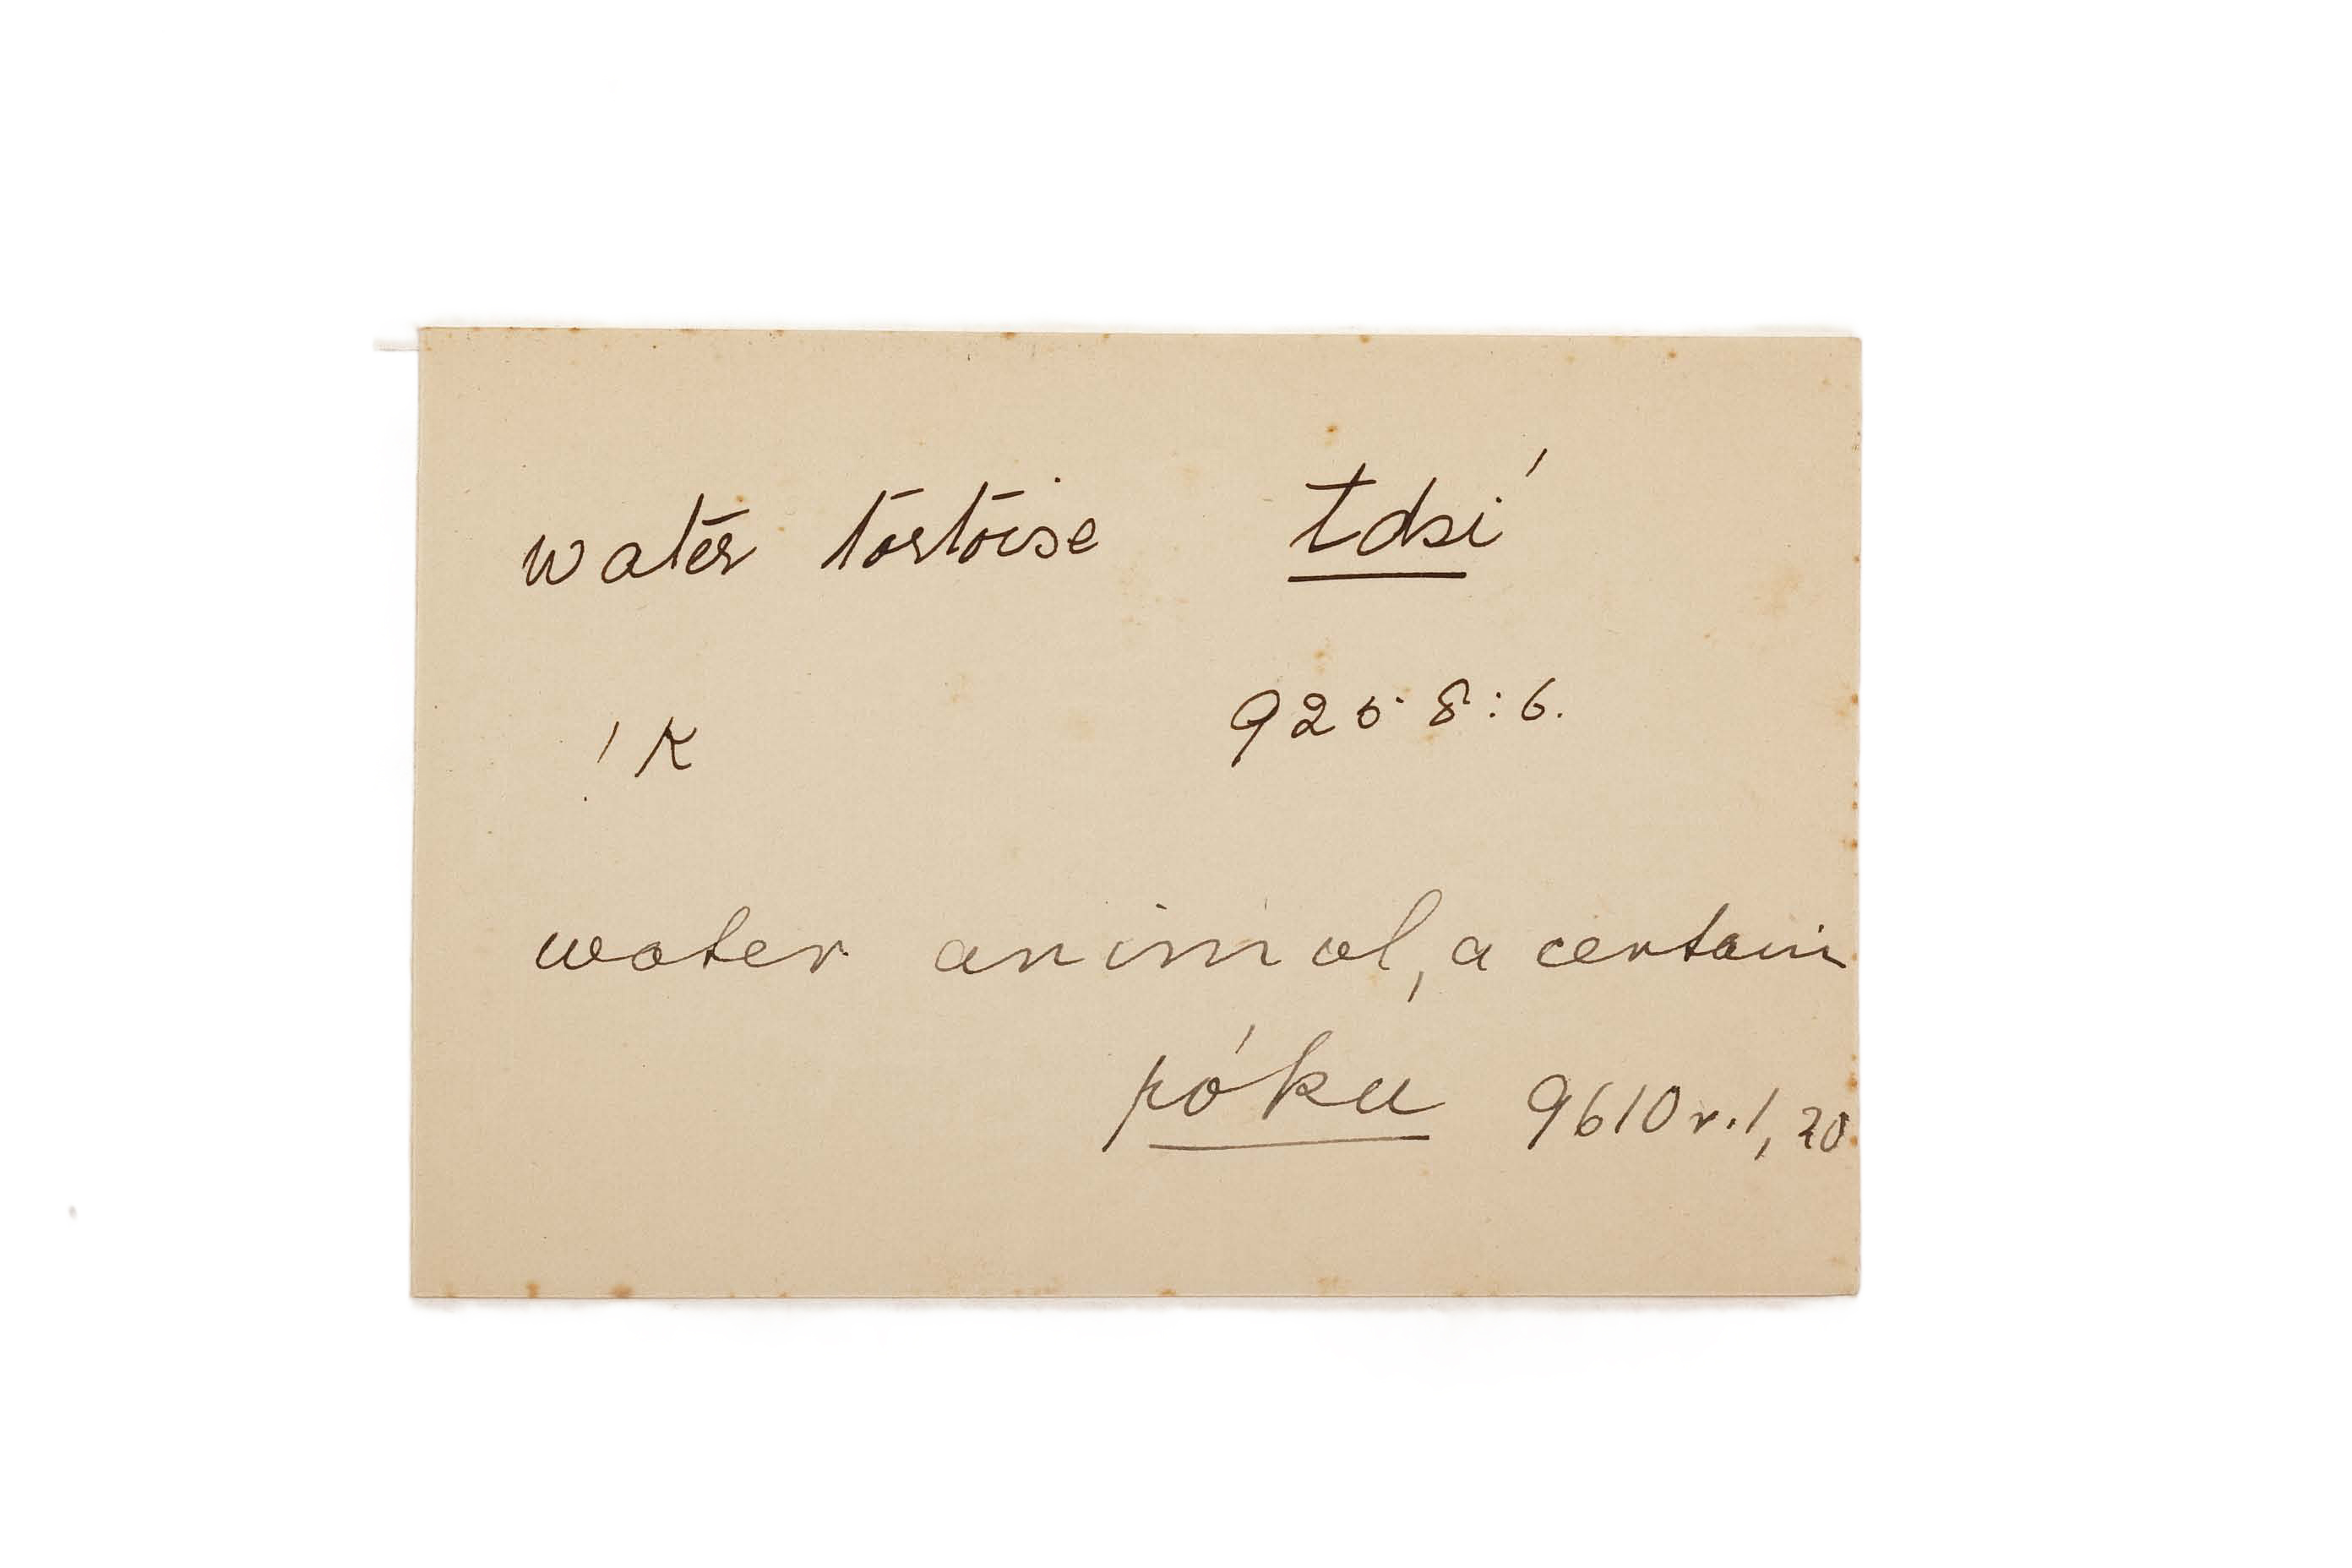 water tortoise tdsí
!K 925 8:6.
water animal, a certain
póku 9610 r.1, 20